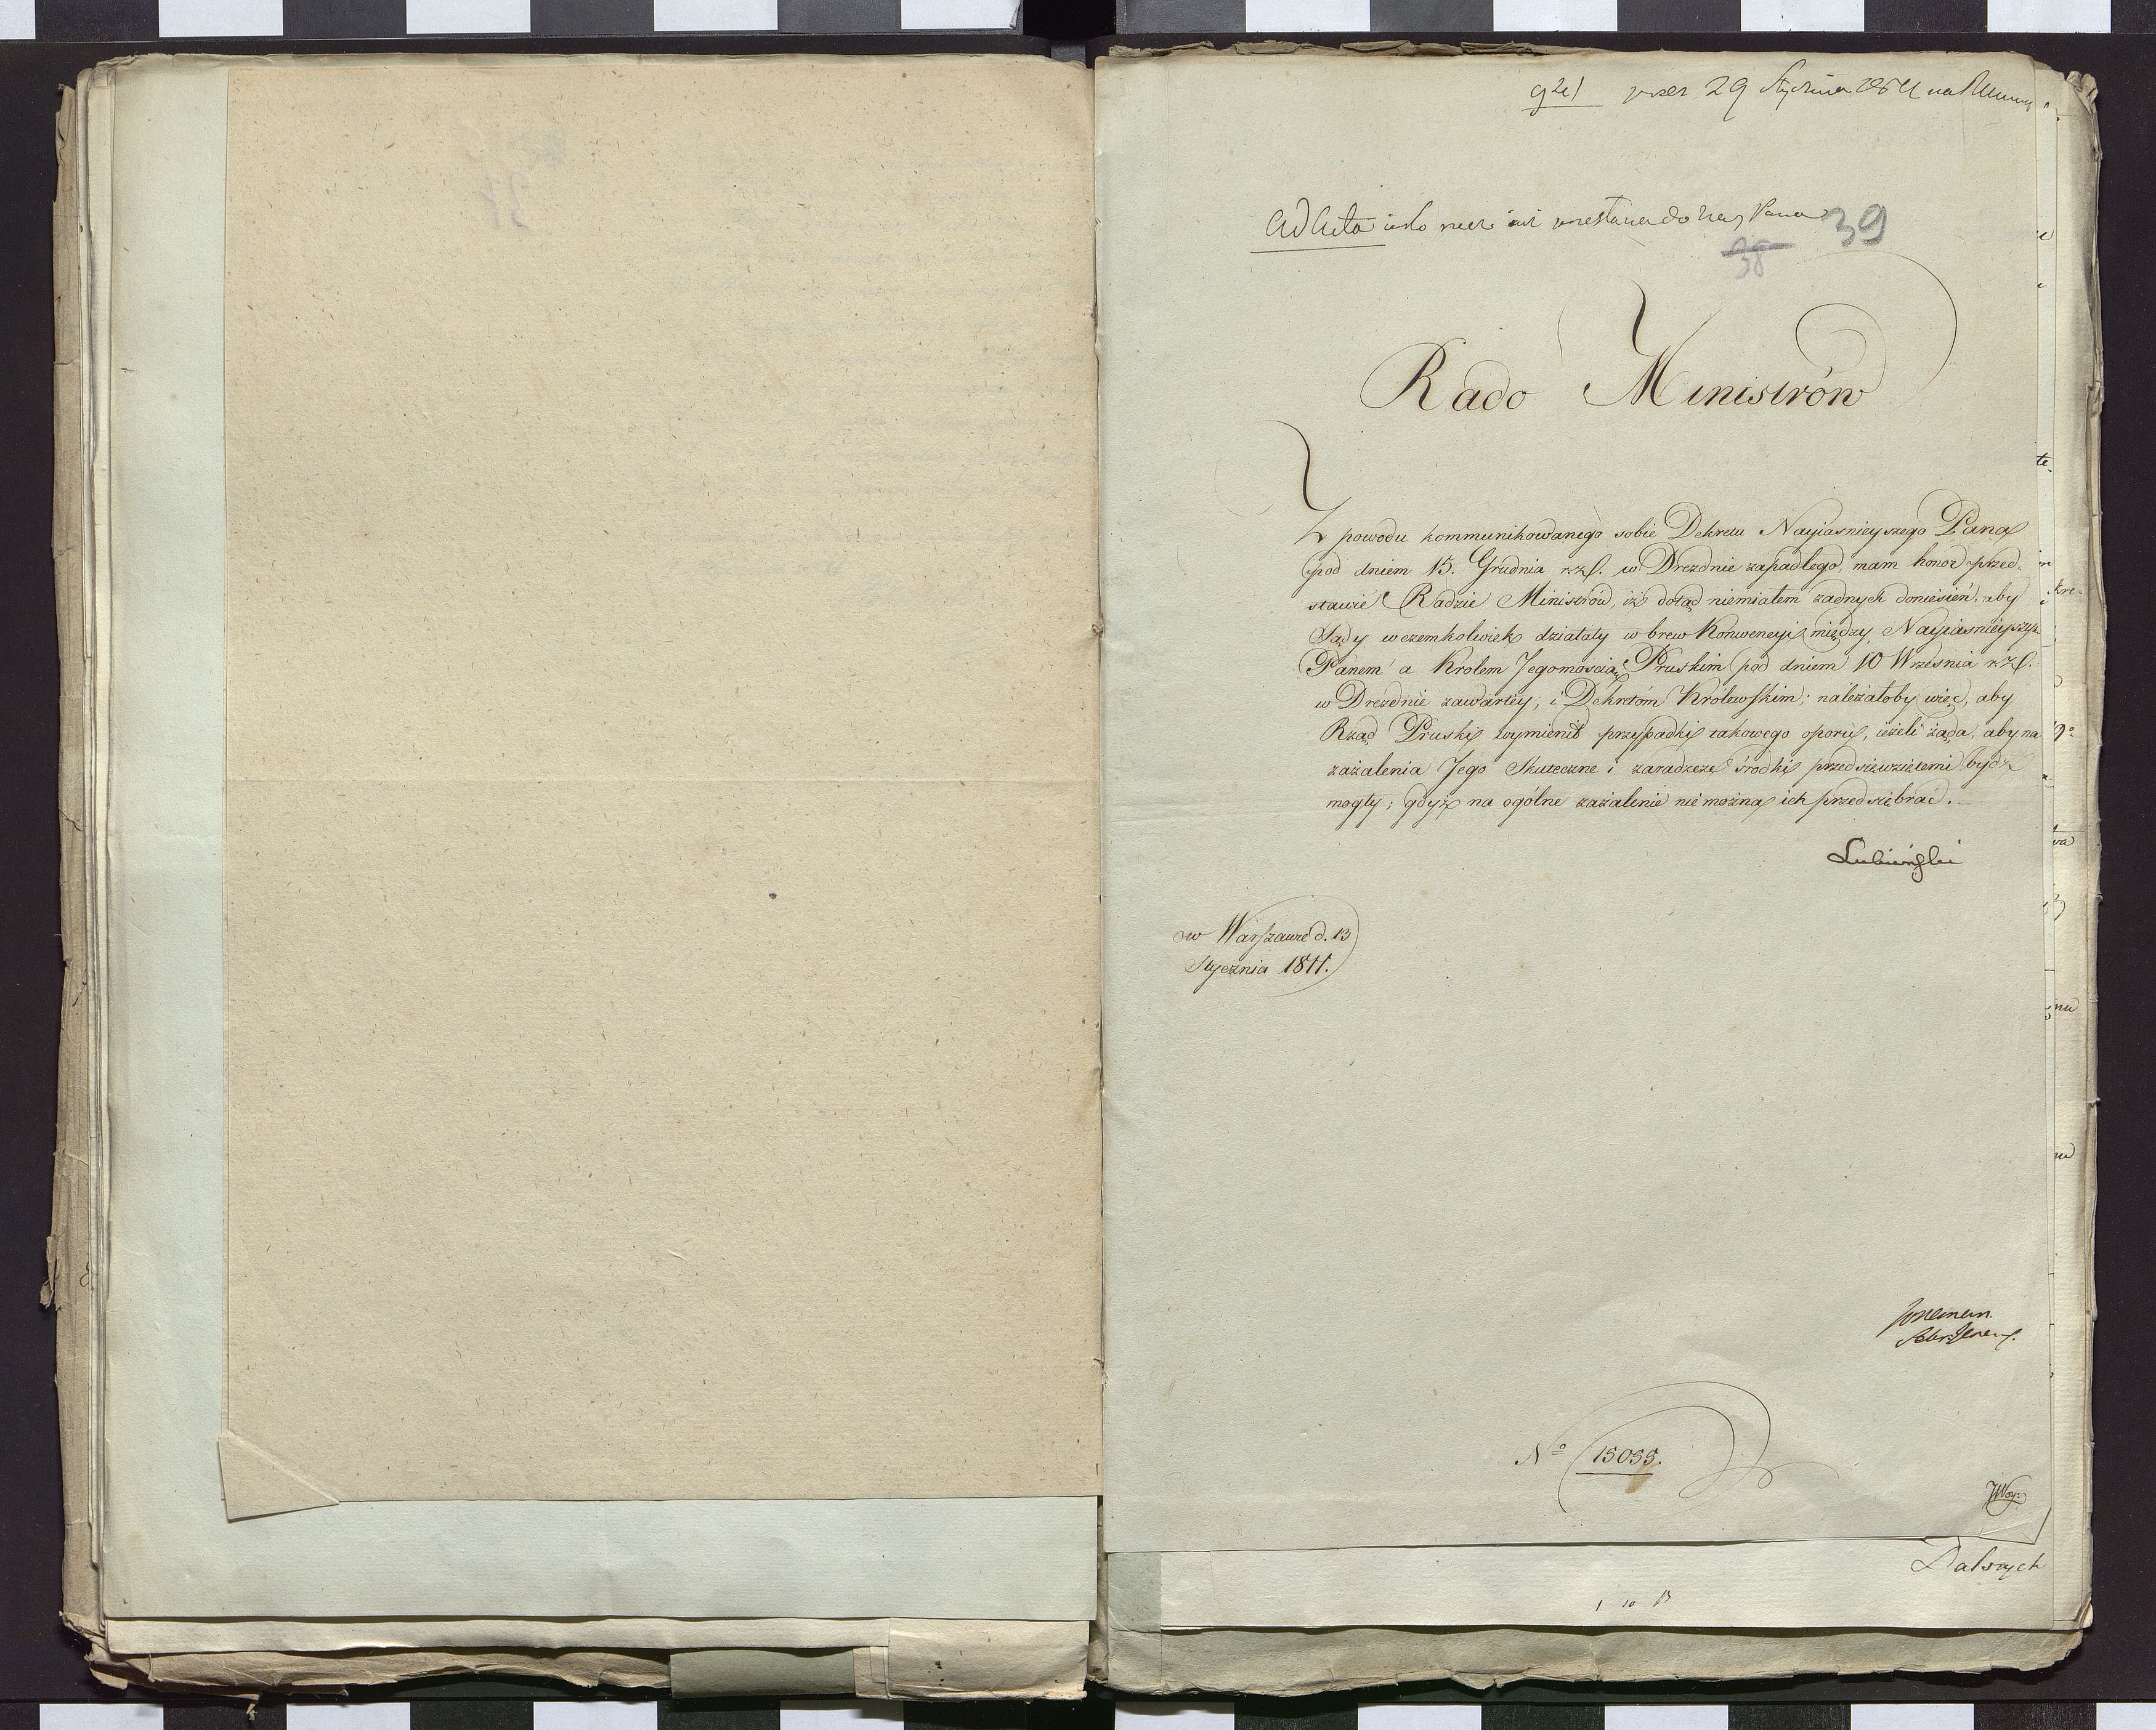 29 Stycznia
Ad Acta iako rzecz iuż przesłana do Nay Pana 39
38
Rado Ministrów
Z powodu kommunikowanego sobie Dekretu Nayiasnieyszego Pana
pod dniem 15. Grudnia r. z. w Dreznie zapadłego, mam honor przed-
stawić Radzie Ministrów, iż dotąd niemiałem żadnych doniesień, aby
Sądy w czemkolwiek działały w brew Konwencyi między Nayiasnieyszym
Panem a Krolem Jegomoscią Pruskim pod dniem 10 Września r. z.
w Dreznie zawartey, i Dekretom Królewskim; należałoby więc, aby
Rząd Pruski wymienił przypadki takowego oporu, ieżeli żąda, aby na
zażalenia Jego Skuteczne i zaradzcze środki przedsiewziętemi bydź
mogły; gdyż na ogólne zażalenie nie można ich przedsiębrać.
Lubieński
w Warszawie d. 13
Stycznia 1811.
No 15055.
Dalszych